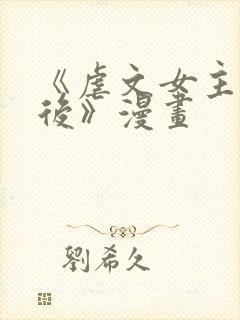 《虐文女主
後》漫畫
劉希久